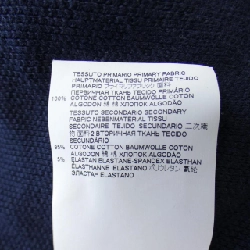 TESSUTO PRIMARIO PRIMARY FABRIC
HAUPTMATERIAL TISSU PRIMAIRE TEJIDO
PRIMARIO
ПЕРВИЧНАЯ ТКАНЬ TECIDO PRIMÁRIO
100% COTONE COTTON BAUMWOLLE COTON
ALGODON 棉 棉 ХЛОПОК ALGODÃO
TESSUTO SECONDARIO SECONDARY
FABRIC NEBENMATERIAL TISSU
SECONDAIRE TEJIDO SECUNDARIO 二次
物 面料 2 ВТОРИЧНАЯ ТКАНЬ TECIDO
SECUNDÁRIO
95% COTONE COTTON BAUMWOLLE COTON
ALGODON 棉 棉 ХЛОПОК ALGODÃO
5% ELASTAN ELASTANE-SPANDEX ELASTHAN
ELASTANO
ЭЛАСТАН ELASTANO